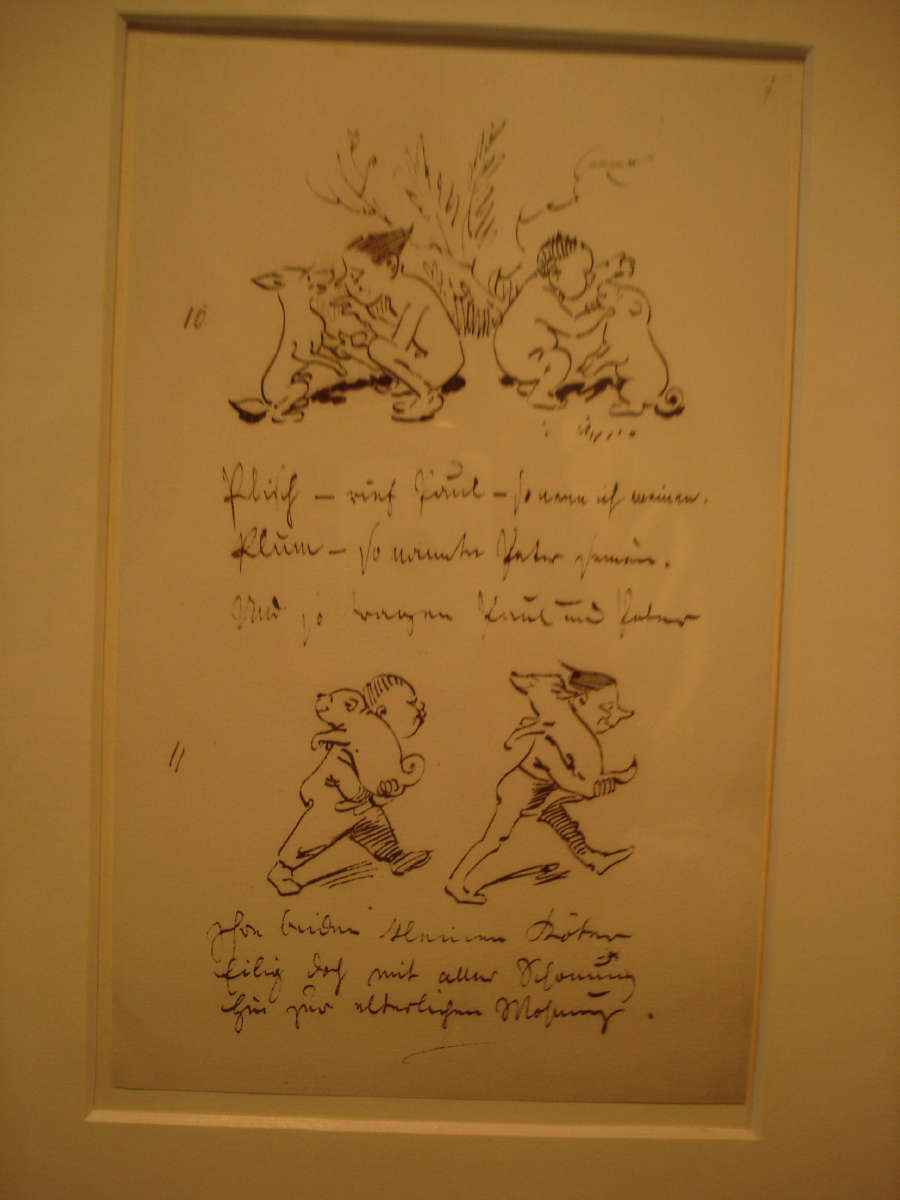 7
10.
Plisch – rief Paul – so nenn ich meinen.
Plum – so nannte Peter seinen.
Und so tragen Paul und Peter
11
Ihre beiden kleinen Köter
Eilig doch mit aller Schonung
Hin zur elterlichen Wohnung.